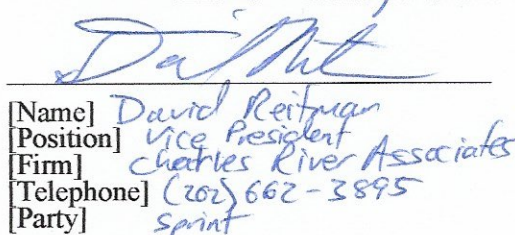 [Name] David Reitman
[Position] Vice President
[Firm] Charles River Associates
[Telephone] (202) 662-3895
[Party] Sprint